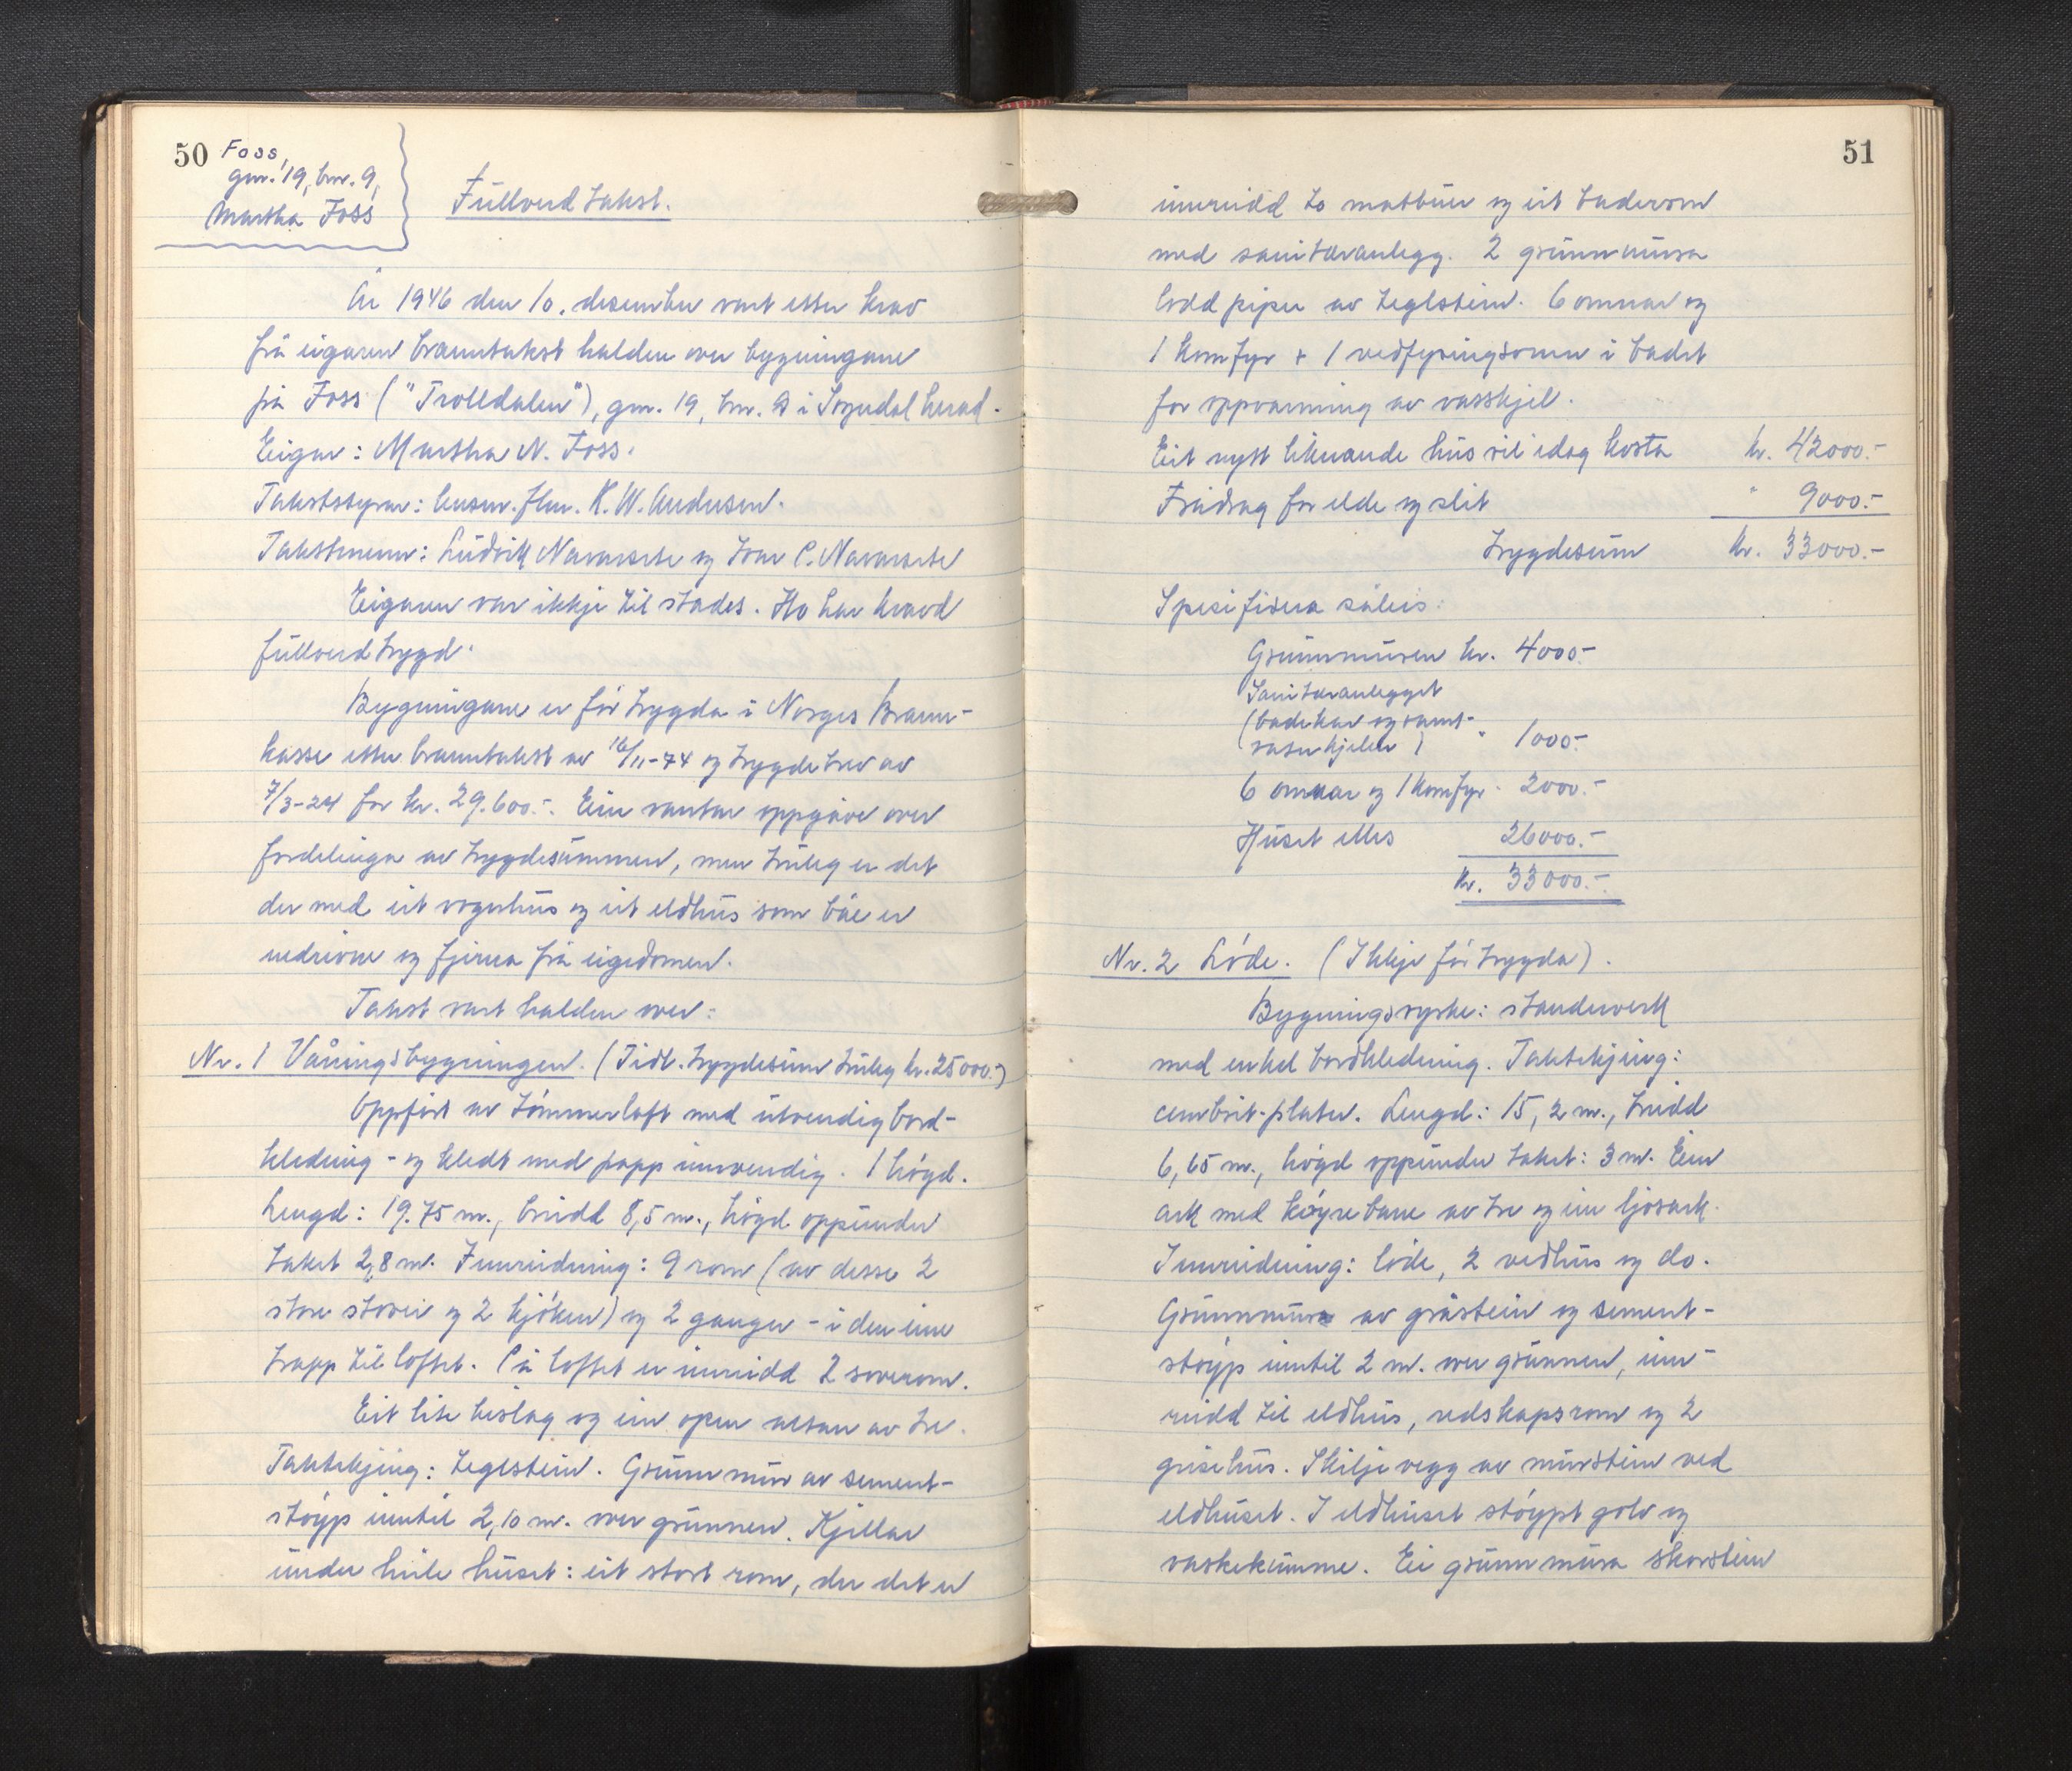 50
Foss,
gnr. 19, bnr. 9,
Martha Foss
Fullverdtakst.
År 1946 den 10. desember vart etter krav
frå eigaren branntakst halden over bygningane
på Foss ("Trolldalen"), gnr. 19, bnr. 9 i Sogndal herad.
Eigar: Martha N. Foss.
Takststyrar: lensm. flm. K. W. Andersen.
Takstmenn: Ludvik Navarsete og Ivar C. Navarsete
Eigaren var ikkje til stades. Ho har kravd
fullverdtrygd.
Bygningane er før trygda i Norges Brann-
kasse etter branntakst av 16/11-74 og trygdebrev av
7/3-24 for kr. 29.600.-. Ein vantar oppgåve over
fordelinga av trygdesummen, men truleg er det
der med eit vognhus og eit eldhus som båe er
nedrivne og fjerna frå eigedomen.
Takst vart halden over:
Nr. 1 Våningsbygningen. (Tidl. trygdesum truleg kr. 25000.-)
Oppført av tømmerloft med utvendig bord-
kledning - og kledt med papp innvendig. 1 høgd.
Lengd: 19.75 m., breidd 8,5 m., høgd oppunder
taket 2,8 m. Innreidning: 9 rom (av desse 2
store stover og 2 kjøken) og 2 ganger - i den eine
trapp til loftet. På loftet er innreidd 2 soverom.
Eit lite bislag og ein open altan av tre.
Taktekjing: teglstein. Grunnmur av sement-
støyp inntil 2,10 m. over grunnen. Kjellar
under heile huset: eit stort rom, der det er
51
innreidd to matbuer og eit baderom
med sanitæranlegg. 2 grunnmura
lodd piper av teglstein. 6 omnar og
1 komfyr + 1 vedfyringsomn i badet
for oppvarming av vasskjel.
Eit nytt liknande hus vil idag kosta kr. 42000.-
Frådrag for elde og slit " 9000.-
trygdesum kr. 33000.-
Spesifisera såleis:
Grunnmuren kr. 4000.-
Sanitæranlegget
(badekar og varmt-
vatnkjelen) " 1000.-
6 omnar og 1 komfyr " 2000.-
Huset elles 26000.-
kr. 33000.-
Nr. 2 Løde. (Ikkje før trygda).
Bygningsryske: standerverk
med enkel bordkledning. Taktekjing:
cembrit-plater. Lengd: 15,2 m., breidd
6,65 m., høgd oppunder taket: 3 m. Ein
ark med køyrebane av tre og ein ljosark.
Innreidning: løde, 2 vedhus og do.
Grunnmur av gråstein og sement-
støyp inntil 2 m. over grunnen, inn-
reidd til eldhus, redskapsrom og 2
grisehus. Skiljevegg av murstein ved
eldhuset. I eldhuset støypt golv og
vaskekumme. Ei grunnmura skorstein